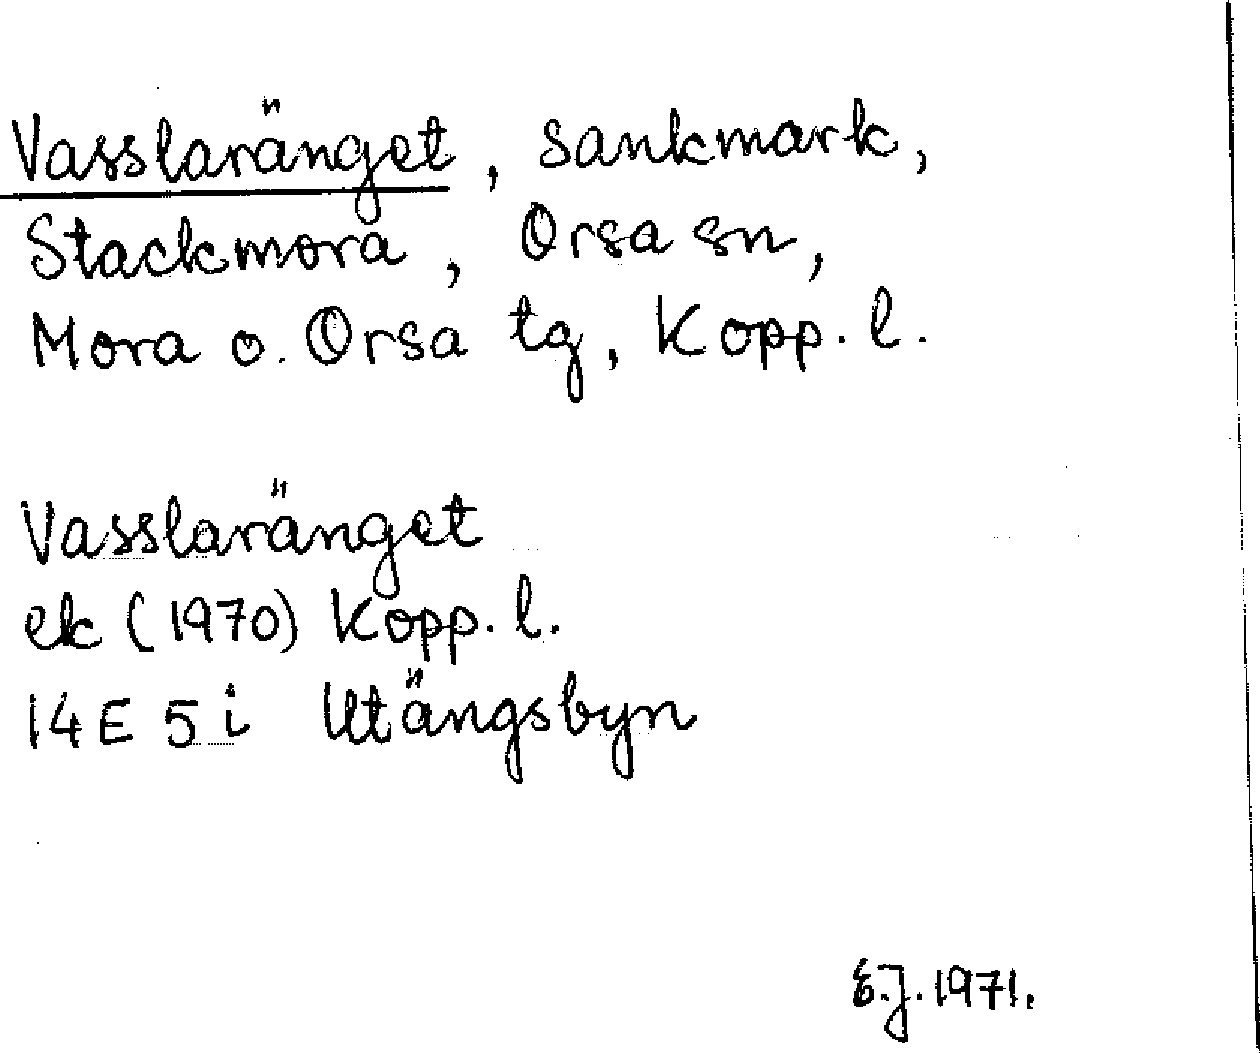 Vasslaränget, sankmark,
Stackmora, Orsa sn,
Mora o. Orsa tg, Kopp. l.
Vasslaränget
ek (1970) Kopp. l.
14E 5 i Utängsbyn
E.J. 1971.